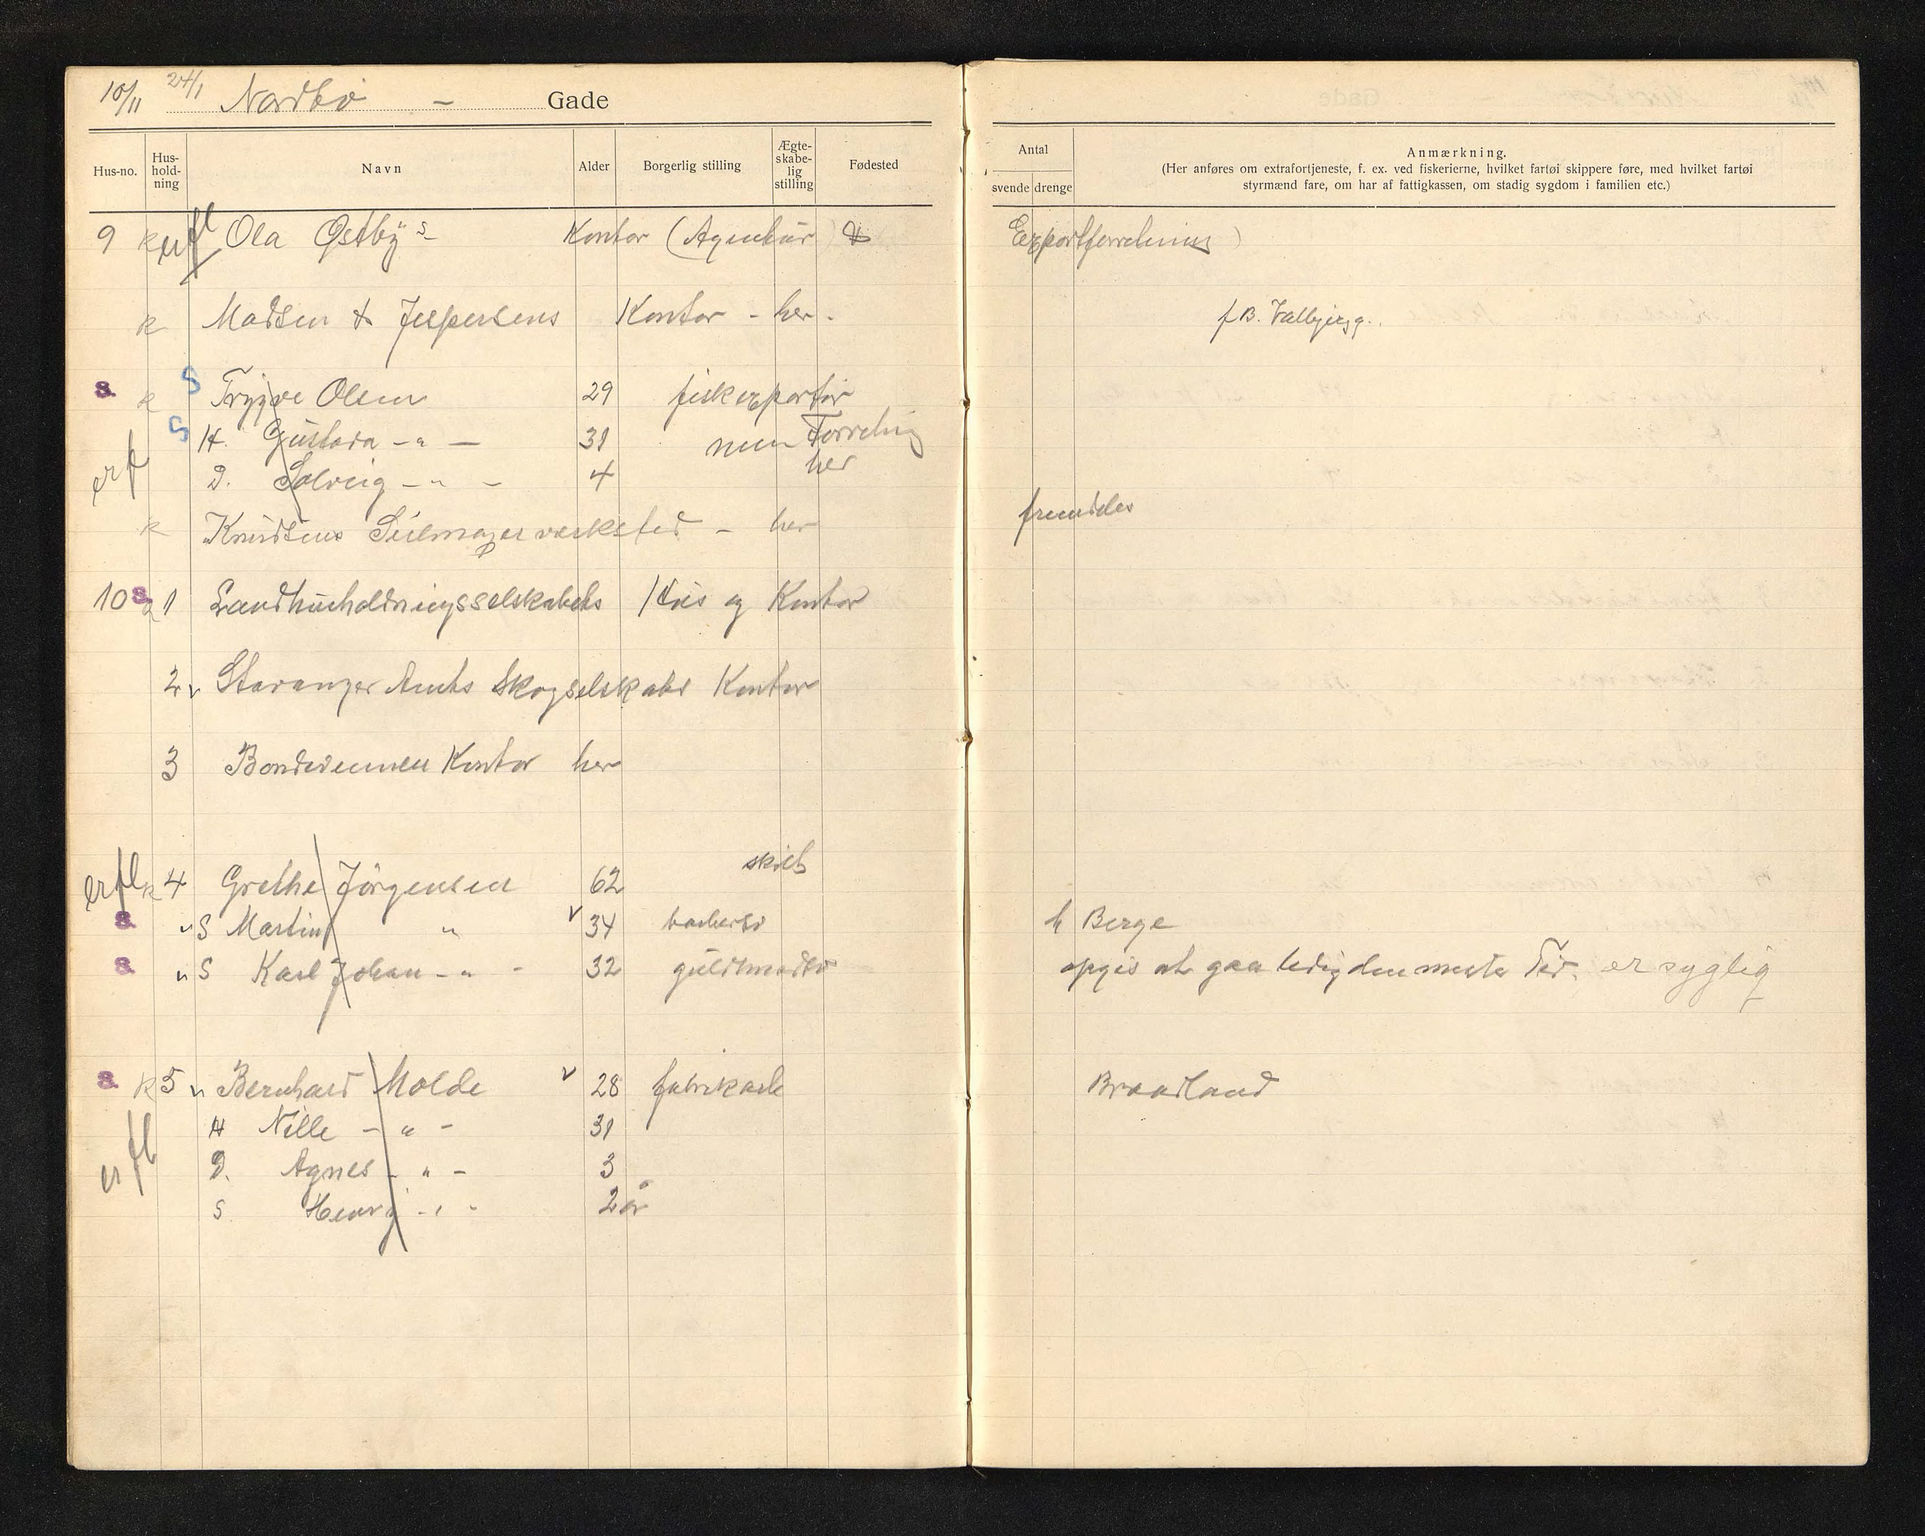 10/11 24/1 Nordbø - Gade
Hus-no. Hus-hold-ning Navn Alder Borgerlig stilling Ægte-skabe-lig stilling Fødested
Antal
svende drenge
Anmærkning.
(Her anføres om extrafortjeneste, f. ex. ved fiskerierne, hvilket fartøi skippere føre, med hvilket fartøi
styrmænd fare, om har af fattigkassen, om stadig sygdom i familien etc.)
9 k erfl Ola Østby's Kontor (Agentur & Exportforretning)
k Madsen & Jespersens Kontor - her. f B. Valbjergg.
s. k S Trygve Olsen 29 fiskexportør
S H. Gustava -"- 31 Forretning
erfl D. Solveig -"- 4 her
fremdeles
k Knudsens Seilmagerverksted - her
10 s. 1 Landhusholdningsselskabets Hus og Kontor
2 v Stavanger Amts Skogselskabs Kontor
3 Bondevennen Kontor her
erfl k 4 Grethe Jörgensen 62 skilt
s. v S Martin " v 34 h Berge
s. v S Karl Johan -"- 32 opgis at gaa ledig den meste Tid. er syglig
s. k 5 v Bernhard Molde v 28 fabrikarb Braadland
H Nille -"- 31
erfl D. Agnes -"- 3
S Henry -"- 2 år